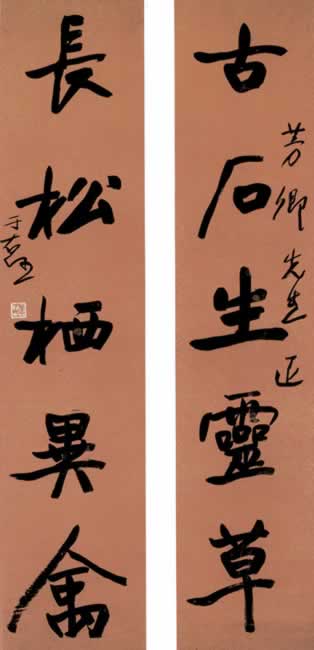 古石生靈草
芳卿先生正
長松栖異禽
于右任